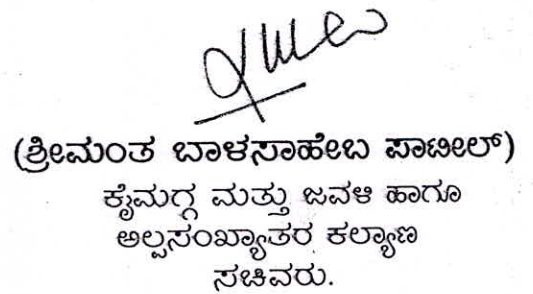 (ಶ್ರೀಮಂತ ಬಾಳಸಾಹೇಬ ಪಾಟೀಲ್)
ಕೈಮಗ್ಗ ಮತ್ತು ಜವಳಿ ಹಾಗೂ
ಅಲ್ಪಸಂಖ್ಯಾತರ ಕಲ್ಯಾಣ
ಸಚಿವರು.